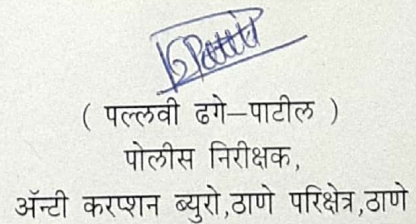 ( पल्लवी ढगे–पाटील )
पोलीस निरीक्षक,
ॲन्टी करप्शन ब्युरो,ठाणे परिक्षेत्र,ठाणे